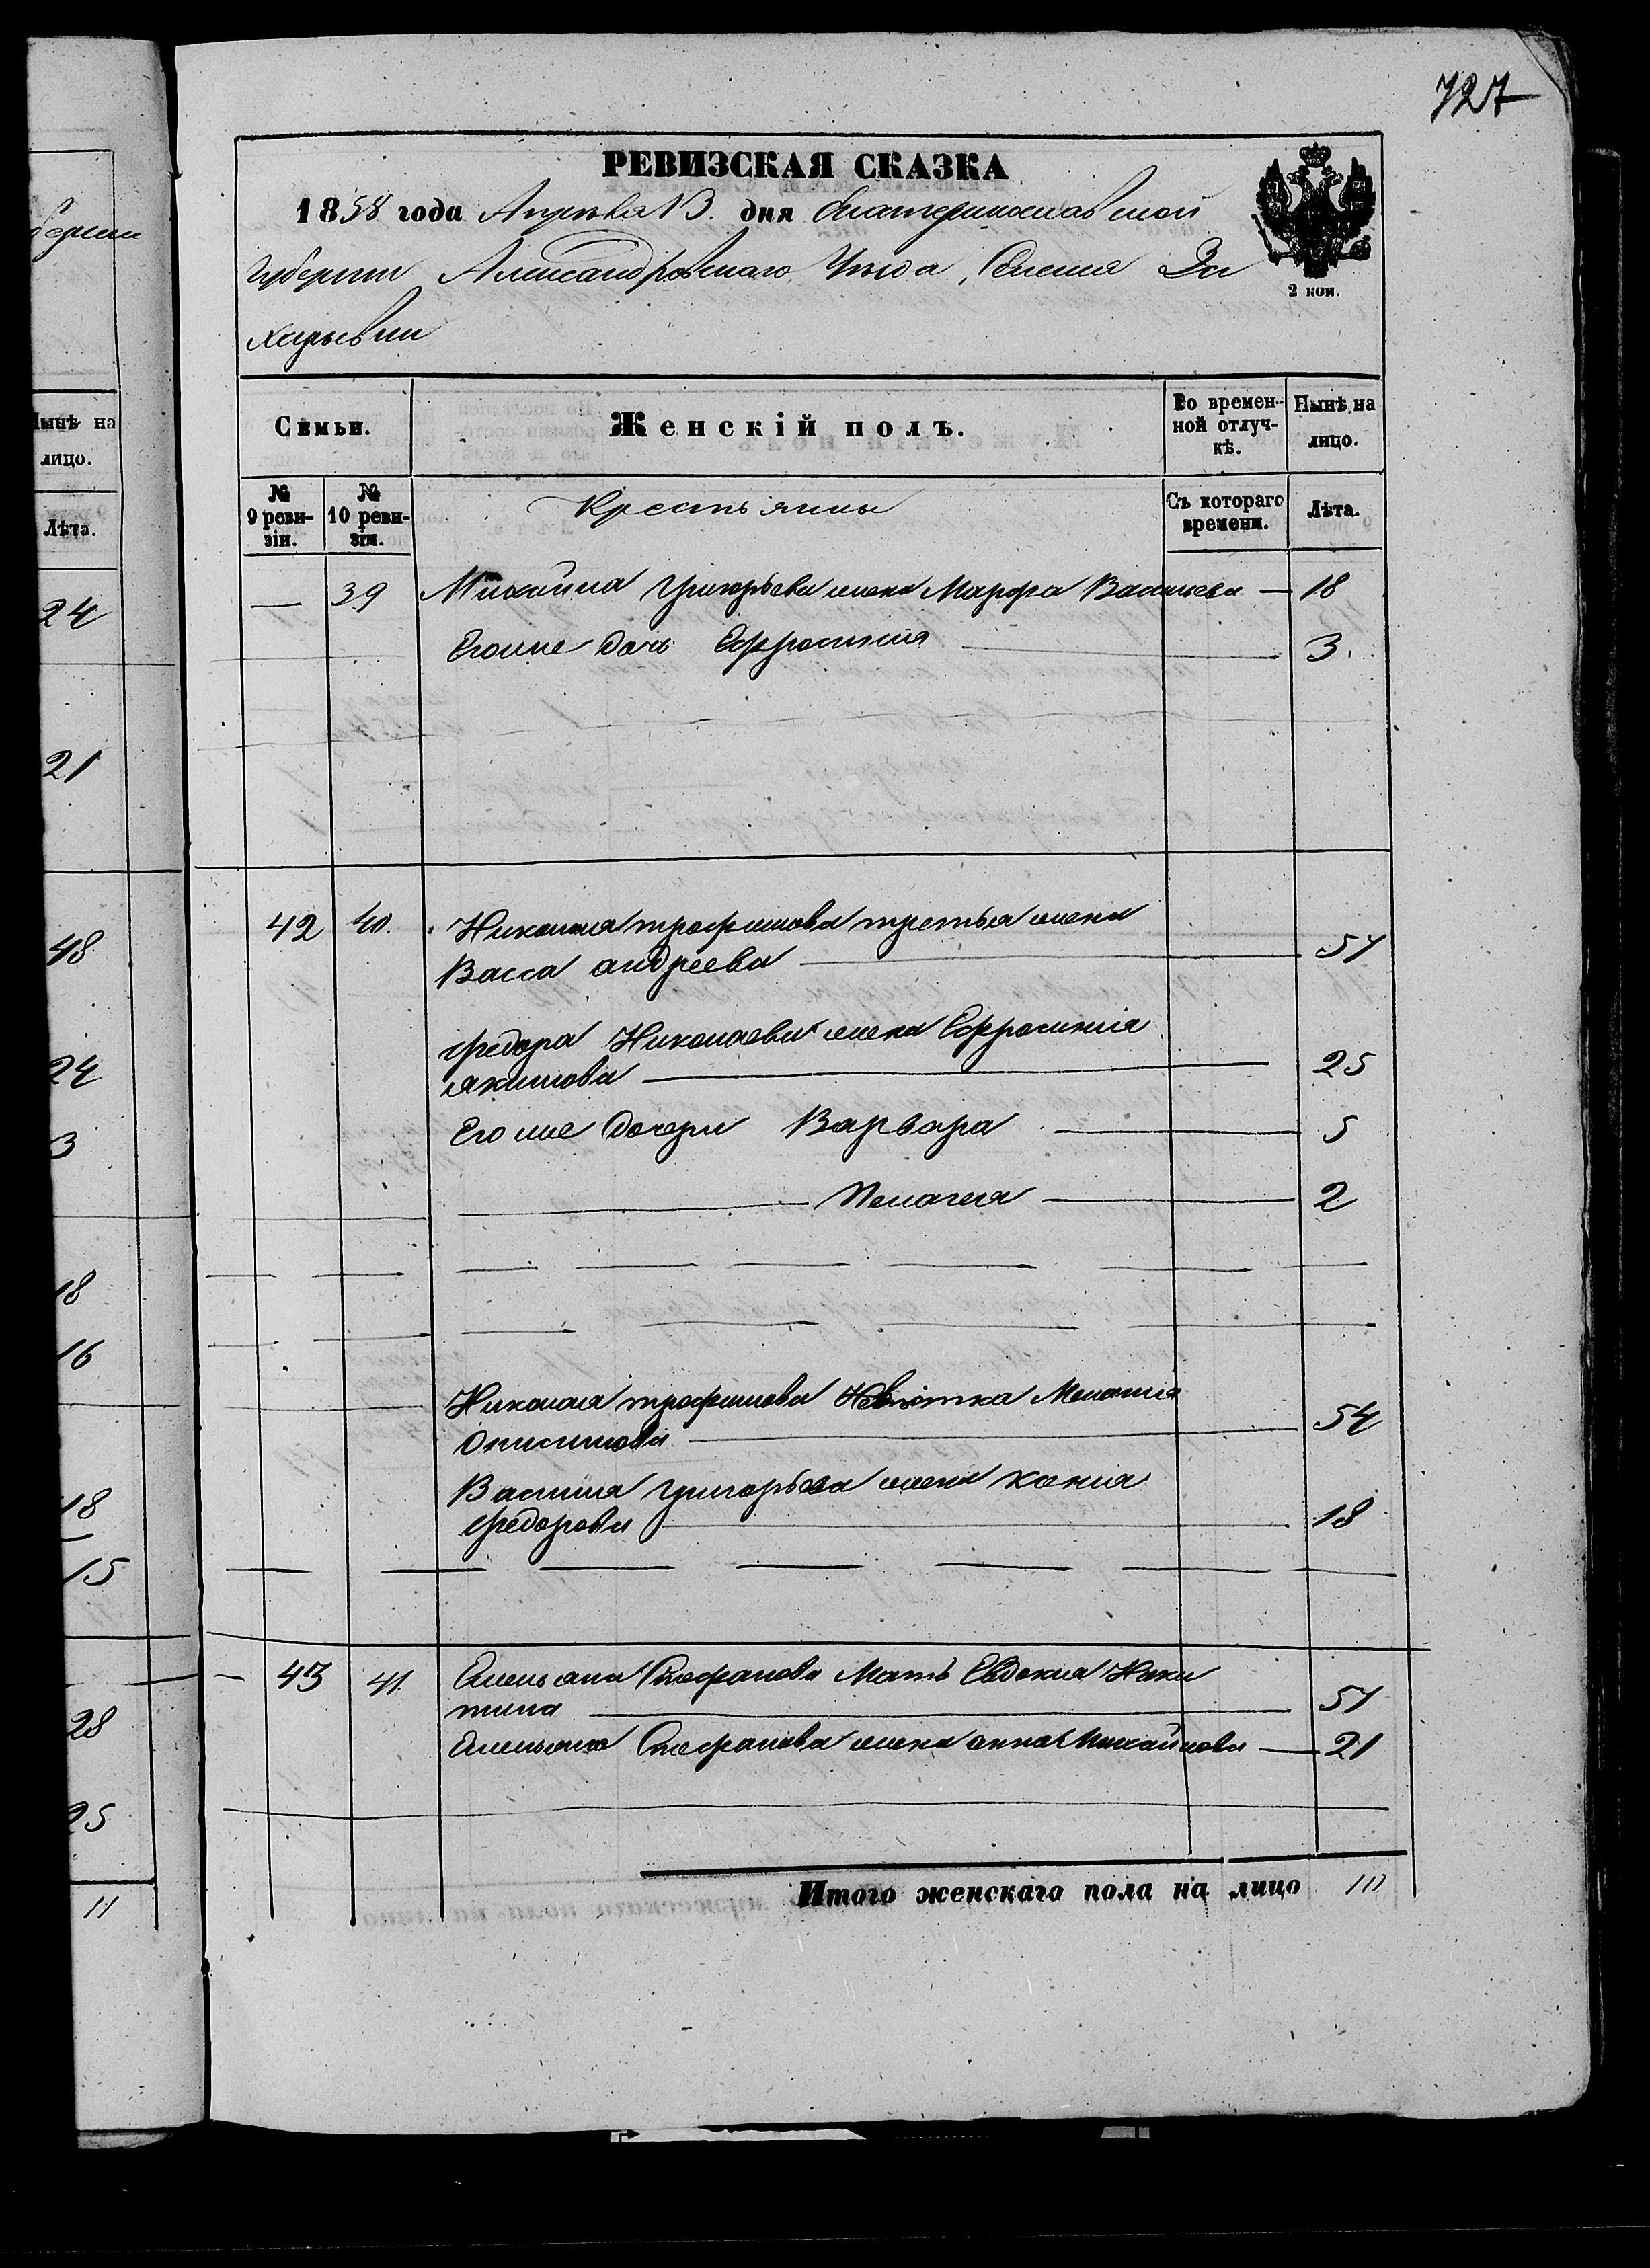 727
РЕВИЗСКАЯ СКАЗКА
1858 года Апреля 13. дня Екатеринославской
Губернии Александровскаго Уезда, Селения За
харьевки
2 коп.
Семьи.
Женскій полъ.
Во времен-
ной отлуч-
кѣ.
Нынѣ на
лицо.
№
9 реви-
зіи.
№
10 реви-
зіи.
Крестьянны
Съ котораго
времени.
Лѣта.
39 Михаила Григорьева жена Марфа Васильева — 18
Егоже дочь Ефросиния 3.
42 40. Николая трофимова третья жена
Васса андреева 51
Федора Николаева жена Ефросиния
якимова 25
Его же дочери Варвара 5
Пелагея 2
Николая трофимова Невѣстка Мелания
Онисимова 54
Василия Григорьева жена Хения
Федорова 18
43 41. Емельяна Стефанова Мать Евдокия Ники
тина 51
Емельяна Стефанова жена анна Михайлова — 21
Итого женскаго пола на лицо 10
губернии
Нынѣ на
лицо.
Лѣта.
24
21
48
24
3
18
16
18
15
28
25
11